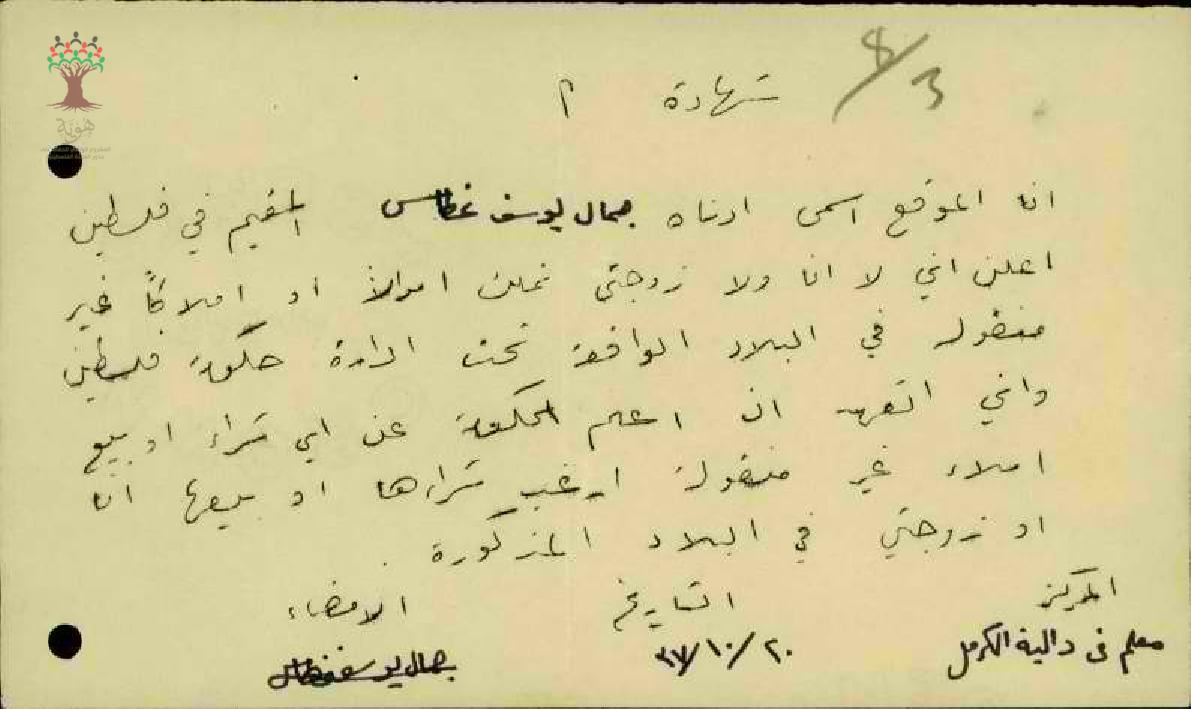 8/3
شهادة ٢
انا الموقع اسمي ادناه جمال يوسف غطاس المقيم في فلسطين
اعلن اني لا انا ولا زوجتي نملك اموالاً او املاكاً غير
منقولة في البلاد الواقعة تحت ادارة حكومة فلسطين
واني اتعهد ان اعلم الحكومة عن اي شراء او بيع
املاك غير منقولة ارغب شراءها او بيعها انا
او زوجتي في البلاد المذكورة .
المركز التاريخ الامضاء
معلم في دالية الكرمل ٢٠/١٠/٣٧ جمال يوسف غطاس
هوية